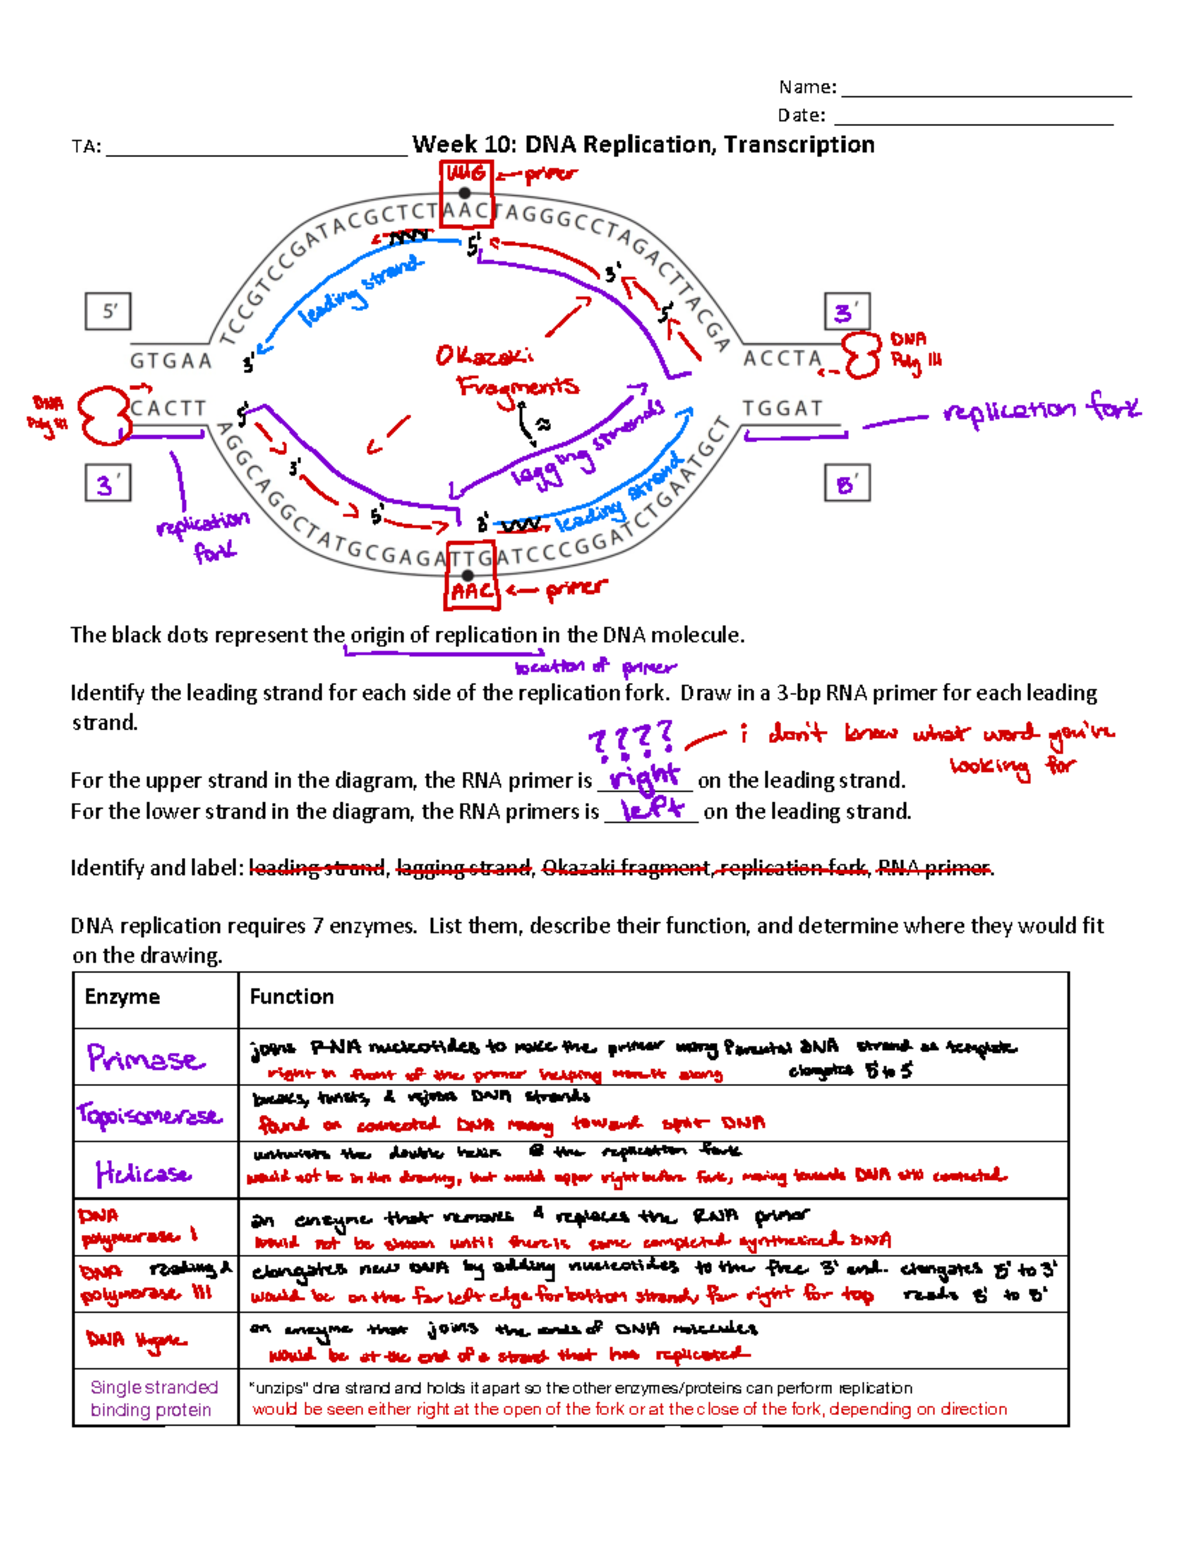 Name:
Date:
TA: Week 10: DNA Replication, Transcription
UUG ← primer
TCCGTCCGATACGCTCTAACTAGGGCCTAGACTTACGA
5'
leading strand
3'
5'
5'
3'
DNA
Poly III
GTGAA
3'
Okazaki
Fragments
ACCTA
DNA
Poly III
CACTT
5'
lagging strands
TGGAT
replication fork
3'
3'
5'
3'
leading strand
5'
replication
fork
AGGCAGGCTATGCGAGATTGATCCCGGATCTGAATGCT
AAC ← primer
The black dots represent the origin of replication in the DNA molecule.
location of primer
Identify the leading strand for each side of the replication fork. Draw in a 3-bp RNA primer for each leading
strand.
???? i don't know what word you've
looking for
For the upper strand in the diagram, the RNA primer is right on the leading strand.
For the lower strand in the diagram, the RNA primers is left on the leading strand.
Identify and label: leading strand, lagging strand, Okazaki fragment, replication fork, RNA primer.
DNA replication requires 7 enzymes. List them, describe their function, and determine where they would fit
on the drawing.
Enzyme Function
Primase joins RNA nucleotides to make the primer using Parental DNA strand as template
right in front of the primer helping move it along elongates 5' to 3'
Topoisomerase breaks, twists, & rejoins DNA strands
found on connected DNA moving toward split DNA
Helicase untwists the double helix @ the replication fork
would not be in this drawing, but would appear right before fork, moving towards DNA still connected
DNA
polymerase I
an enzyme that removes & replaces the RNA primer
would not be shown until there is some completed synthesized DNA
DNA reading &
polymerase III
elongates new DNA by adding nucleotides to the free 3' end. elongates 5' to 3'
would be on the far left edge for bottom strand, far right for top reads 3' to 5'
DNA ligase an enzyme that joins the ends of DNA molecules
would be at the end of a strand that has replicated
Single stranded
binding protein
"unzips" dna strand and holds it apart so the other enzymes/proteins can perform replication
would be seen either right at the open of the fork or at the close of the fork, depending on direction